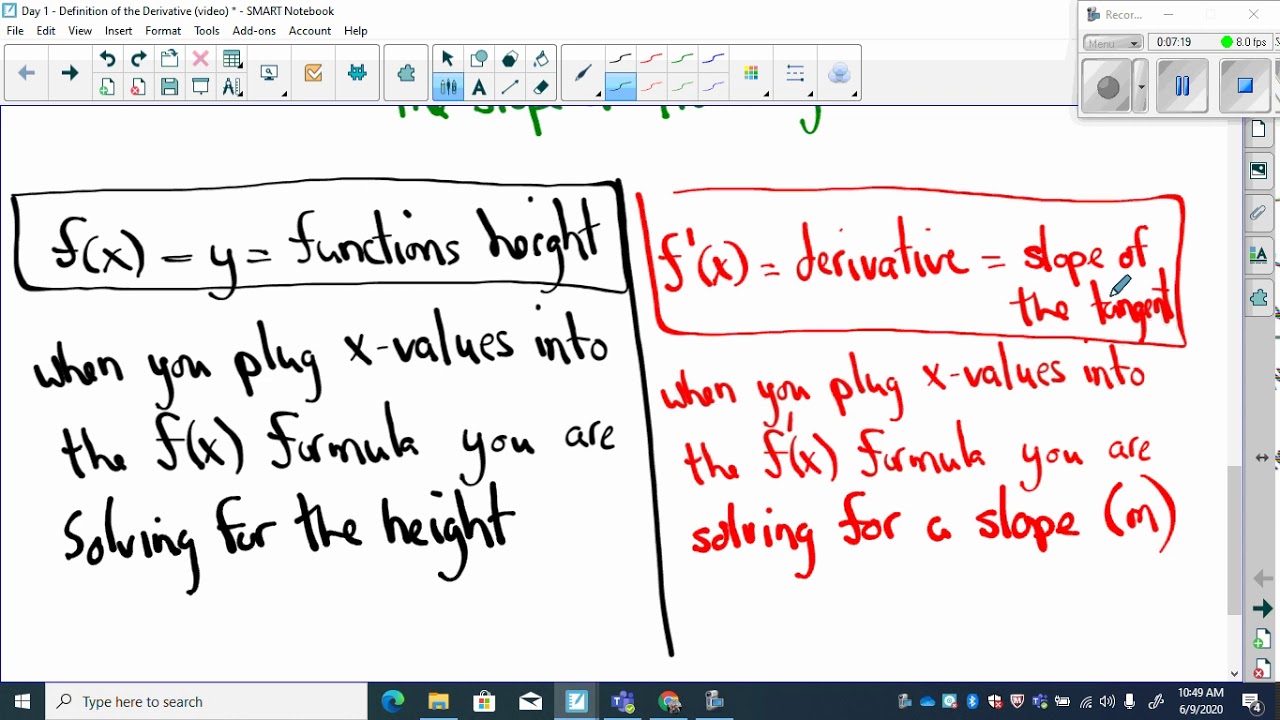 Day 1 - Definition of the Derivative (video) * - SMART Notebook
File Edit View Insert Format Tools Add-ons Account Help
Recor...
Menu 0:07:19 8.0 fps
the slope
f(x) = y = functions height
when you plug x-values into
the f(x) formula you are
solving for the height
f'(x) = derivative = slope of
the tangent
when you plug x-values into
the f'(x) formula you are
solving for a slope (m)
Type here to search
10:49 AM
6/9/2020
4